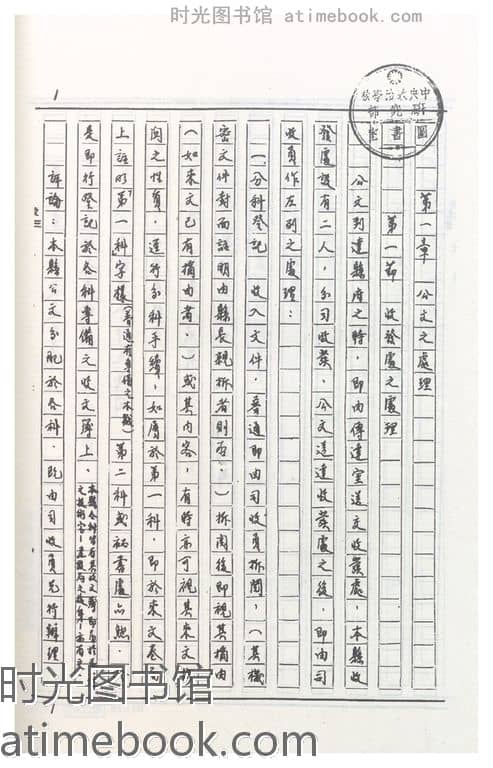 时光图书馆 atimebook.com
1
中央政治學校
研究部
圖書室
第一章 公文之處理
第一節 收發處之處理
公文到達縣府之時，即由傳達室送交收發處，本縣收
發處設有二人，分司收發，公文送達收發處之後，即由司
收員作左列之處理：
一、分科登記 收入文件，普通即由司收員拆閱，（其機
密文件封面註明由縣長親拆者則否，）拆閱後即視其摘由
（如來文已有摘由者，）或其內容，有時亦可視其來文機
關之性質，進行分科手續，如屬於第一科，即於來文卷面
上註明「第一科」字樣（普通有專備之木戳）第二科或秘書處亦然，
是即行登記於各科專備之收文簿上，
評論：本縣公文分配於各科，既由司收員先行辦理
1
时光图书馆
atimebook.com